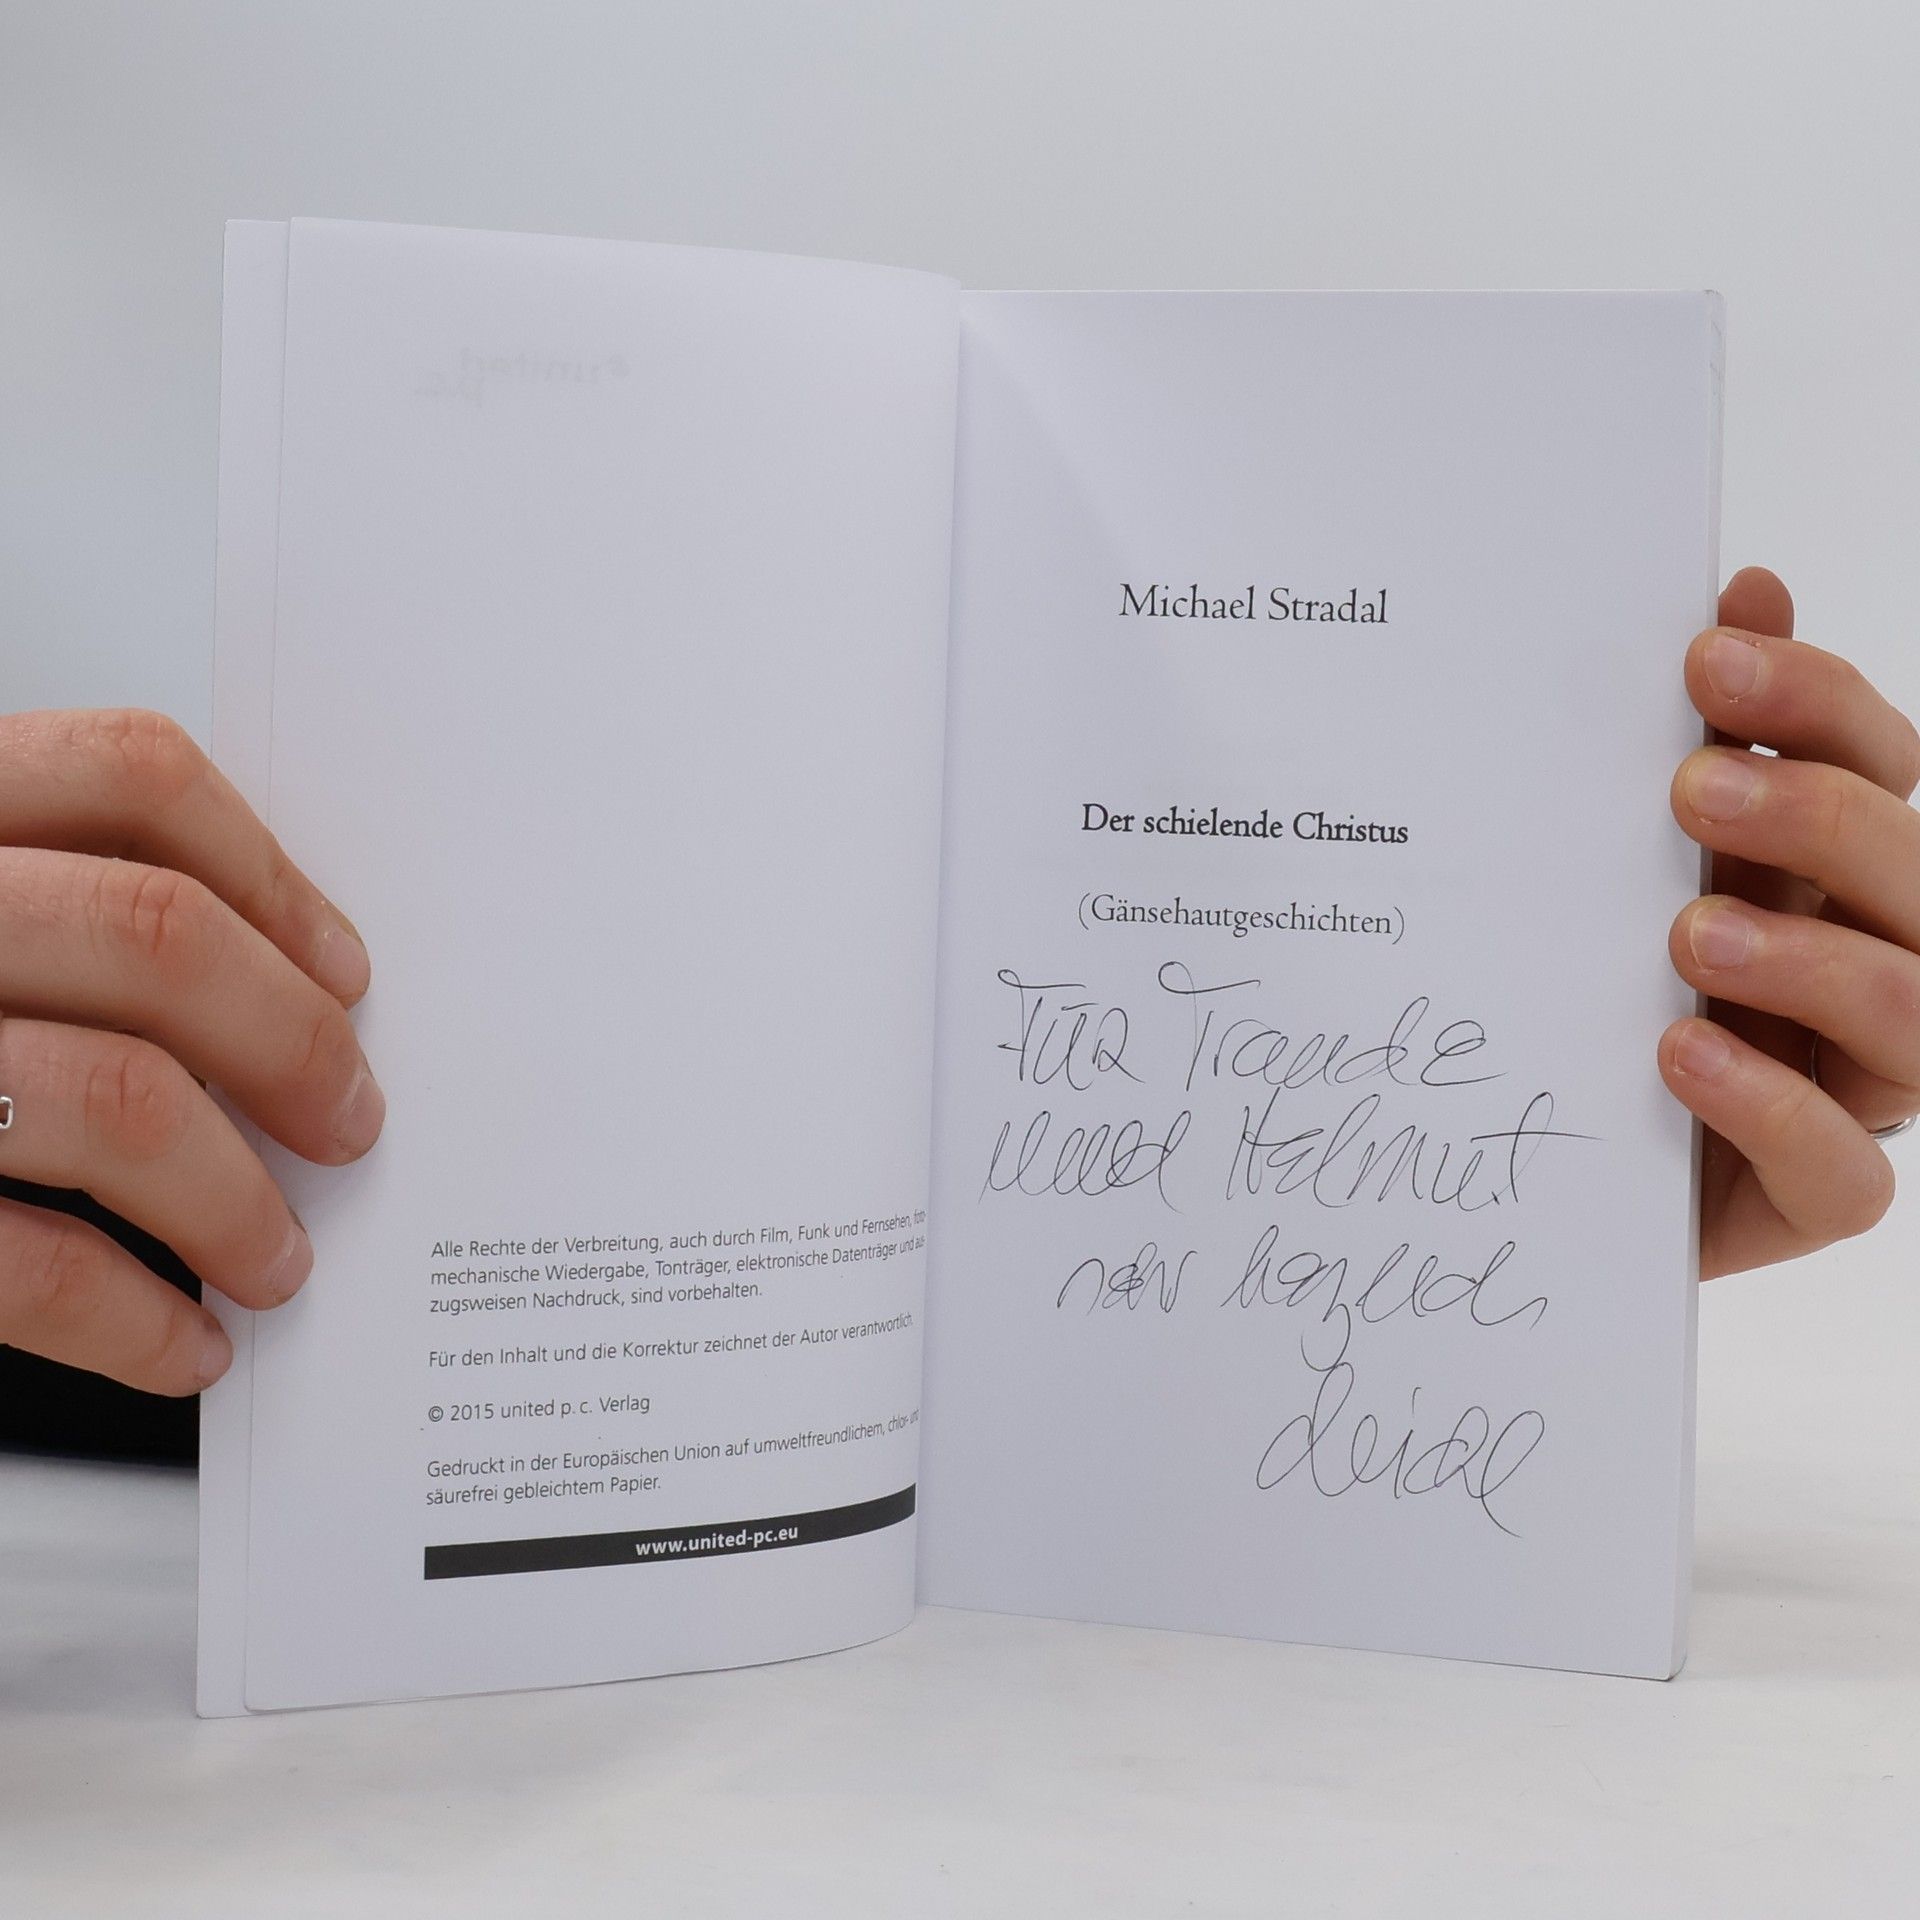 Alle Rechte der Verbreitung, auch durch Film, Funk und Fernsehen, foto-
mechanische Wiedergabe, Tonträger, elektronische Datenträger und aus-
zugsweisen Nachdruck, sind vorbehalten.
Für den Inhalt und die Korrektur zeichnet der Autor verantwortlich.
© 2015 united p. c. Verlag
Gedruckt in der Europäischen Union auf umweltfreundlichem, chlor- und
säurefrei gebleichtem Papier.
www.united-pc.eu
Michael Stradal
Der schielende Christus
(Gänsehautgeschichten)
Für Traude
und Helmut